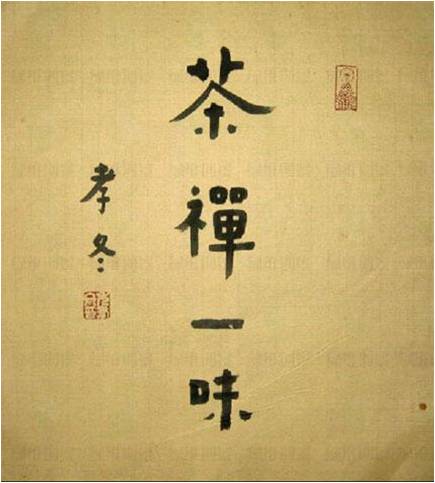 茶禪一味
孝冬